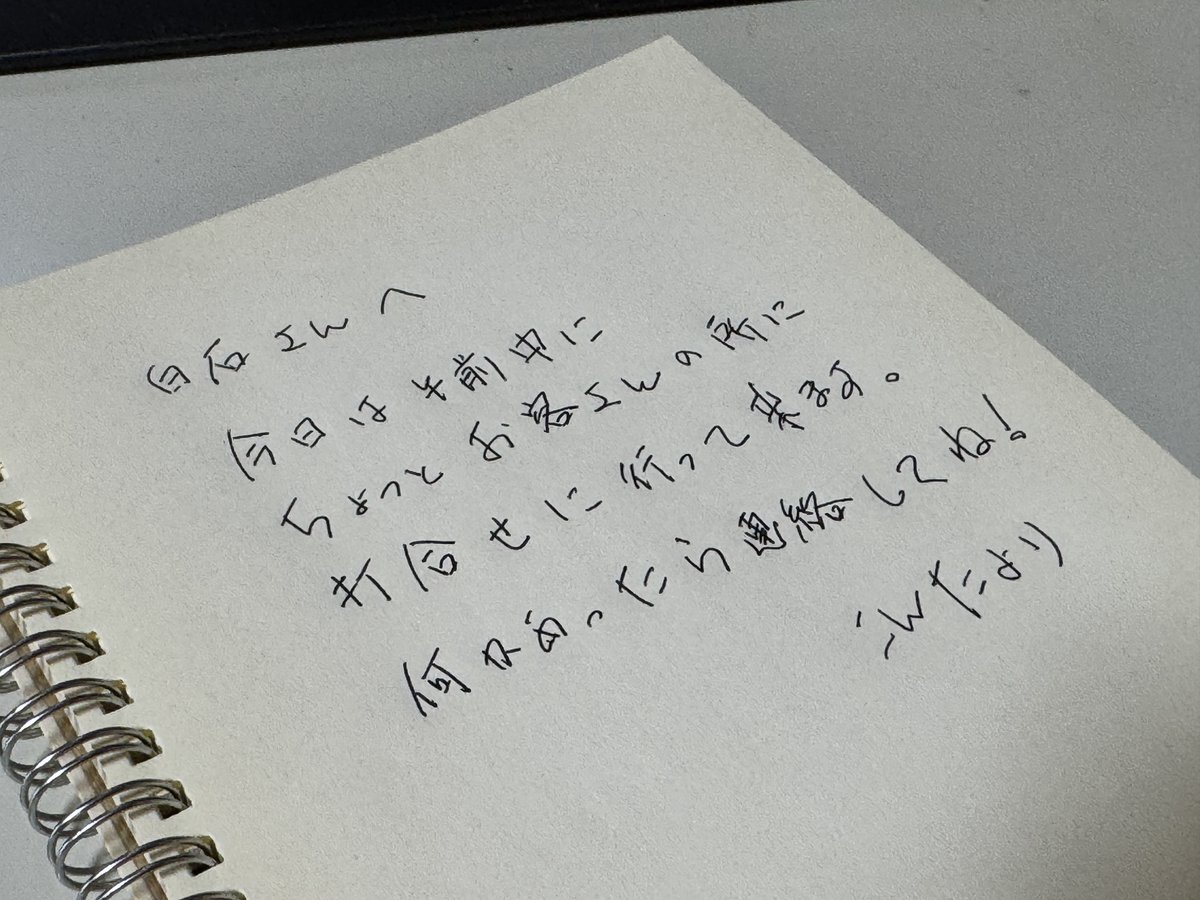 白石さんへ
今日は午前中に
ちょっとお客さんの所に
打合せに行って来ます。
何かあったら連絡してね!
こんたより